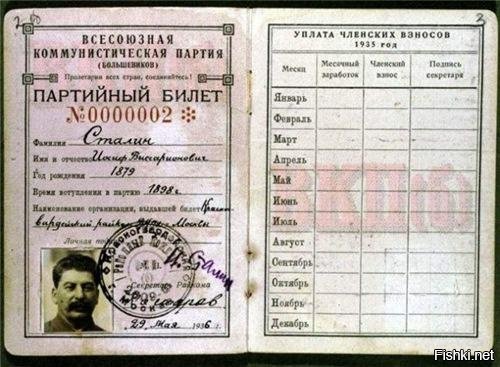 ВСЕСОЮЗНАЯ
КОММУНИСТИЧЕСКАЯ ПАРТИЯ
(БОЛЬШЕВИКОВ)
Пролетарии всех стран, соединяйтесь!
ПАРТИЙНЫЙ БИЛЕТ
№0000002
Фамилия Сталин
Имя и отчество Иосиф Виссарионович
Год рождения 1879
Время вступления в партию 1898г
Наименование организации, выдавшей билет
Личная
И. Сталин
Секретарь Райкома
29 мая 1936 г.
3
УПЛАТА ЧЛЕНСКИХ ВЗНОСОВ
1935 год
Месяц Месячный заработок Членский взнос Подпись секретаря
Январь
Февраль
Март
Апрель
Май
Июнь
Июль
Август
Сентябрь
Октябрь
Ноябрь
Декабрь
ВКП(б)
Fishki.net